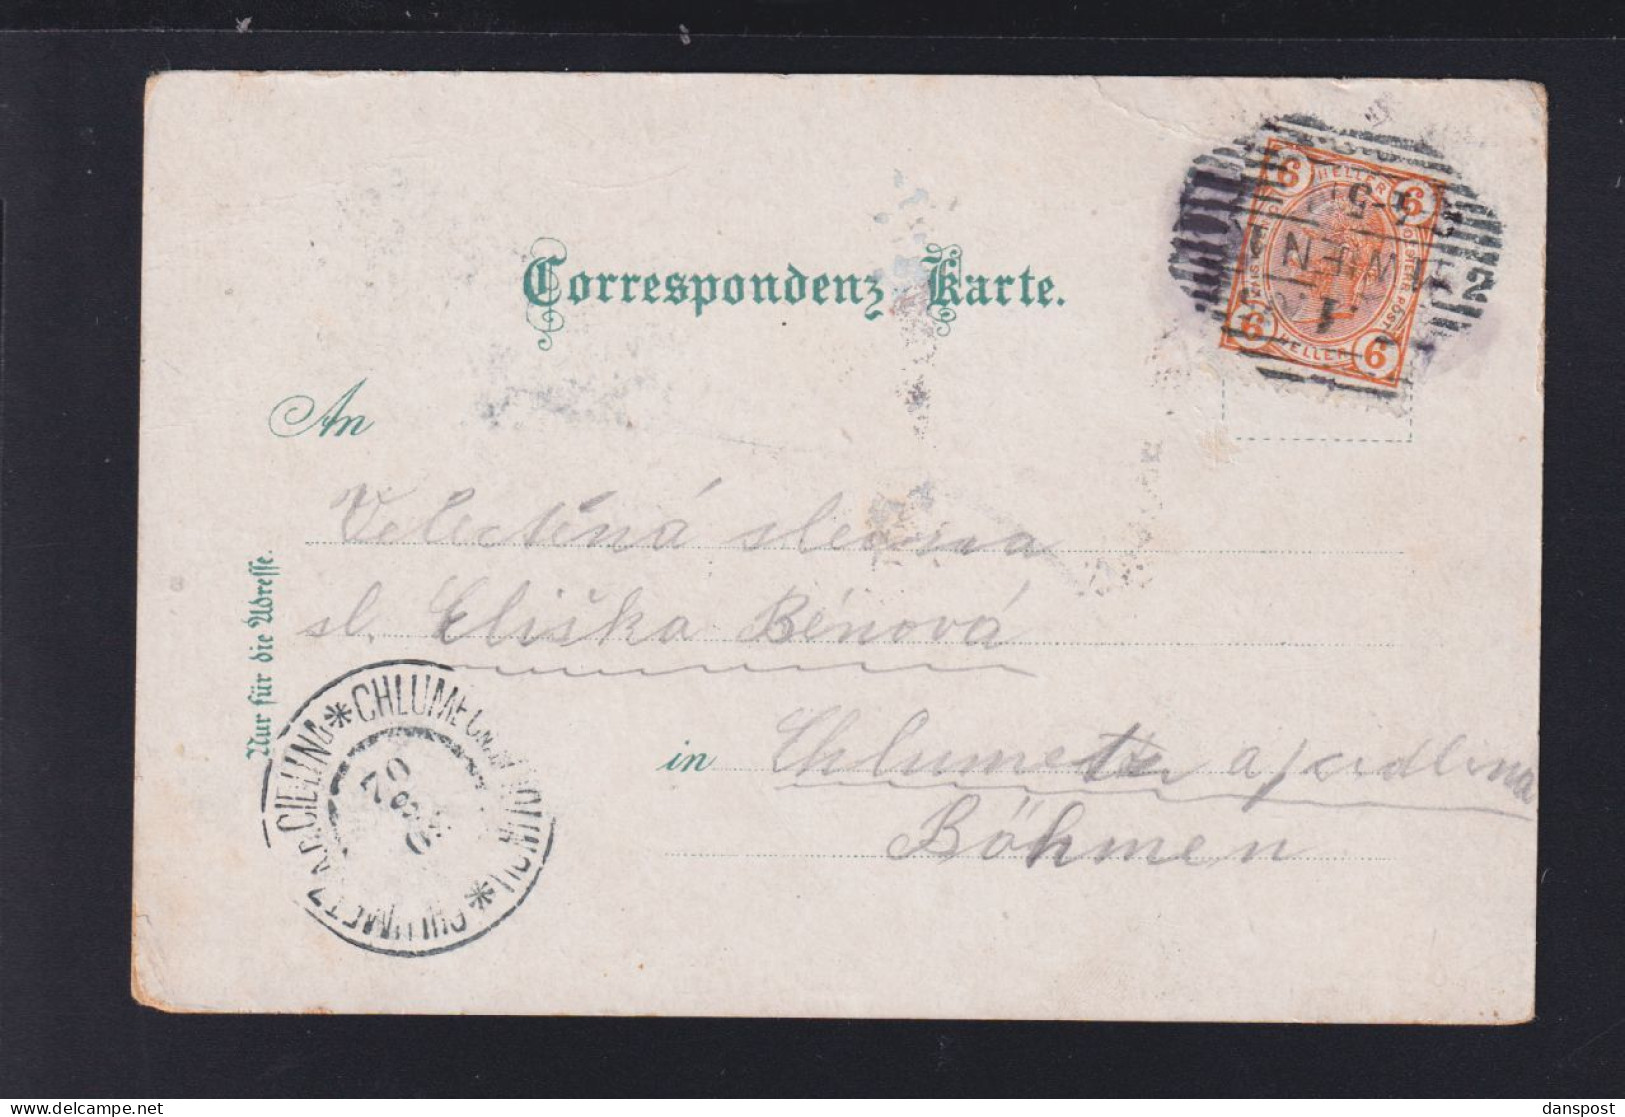 Correspondenz Karte.
6 HELLER 6
6 HELLER 6
WIEN
An
Velectěná slečna
sl. Eliška Bénová
Nur für die Adresse.
in Chlumetz a/cidlina
Böhmen
✻ CHLUMEC
CHLUMETZ A.D. CIDLINA
danspost